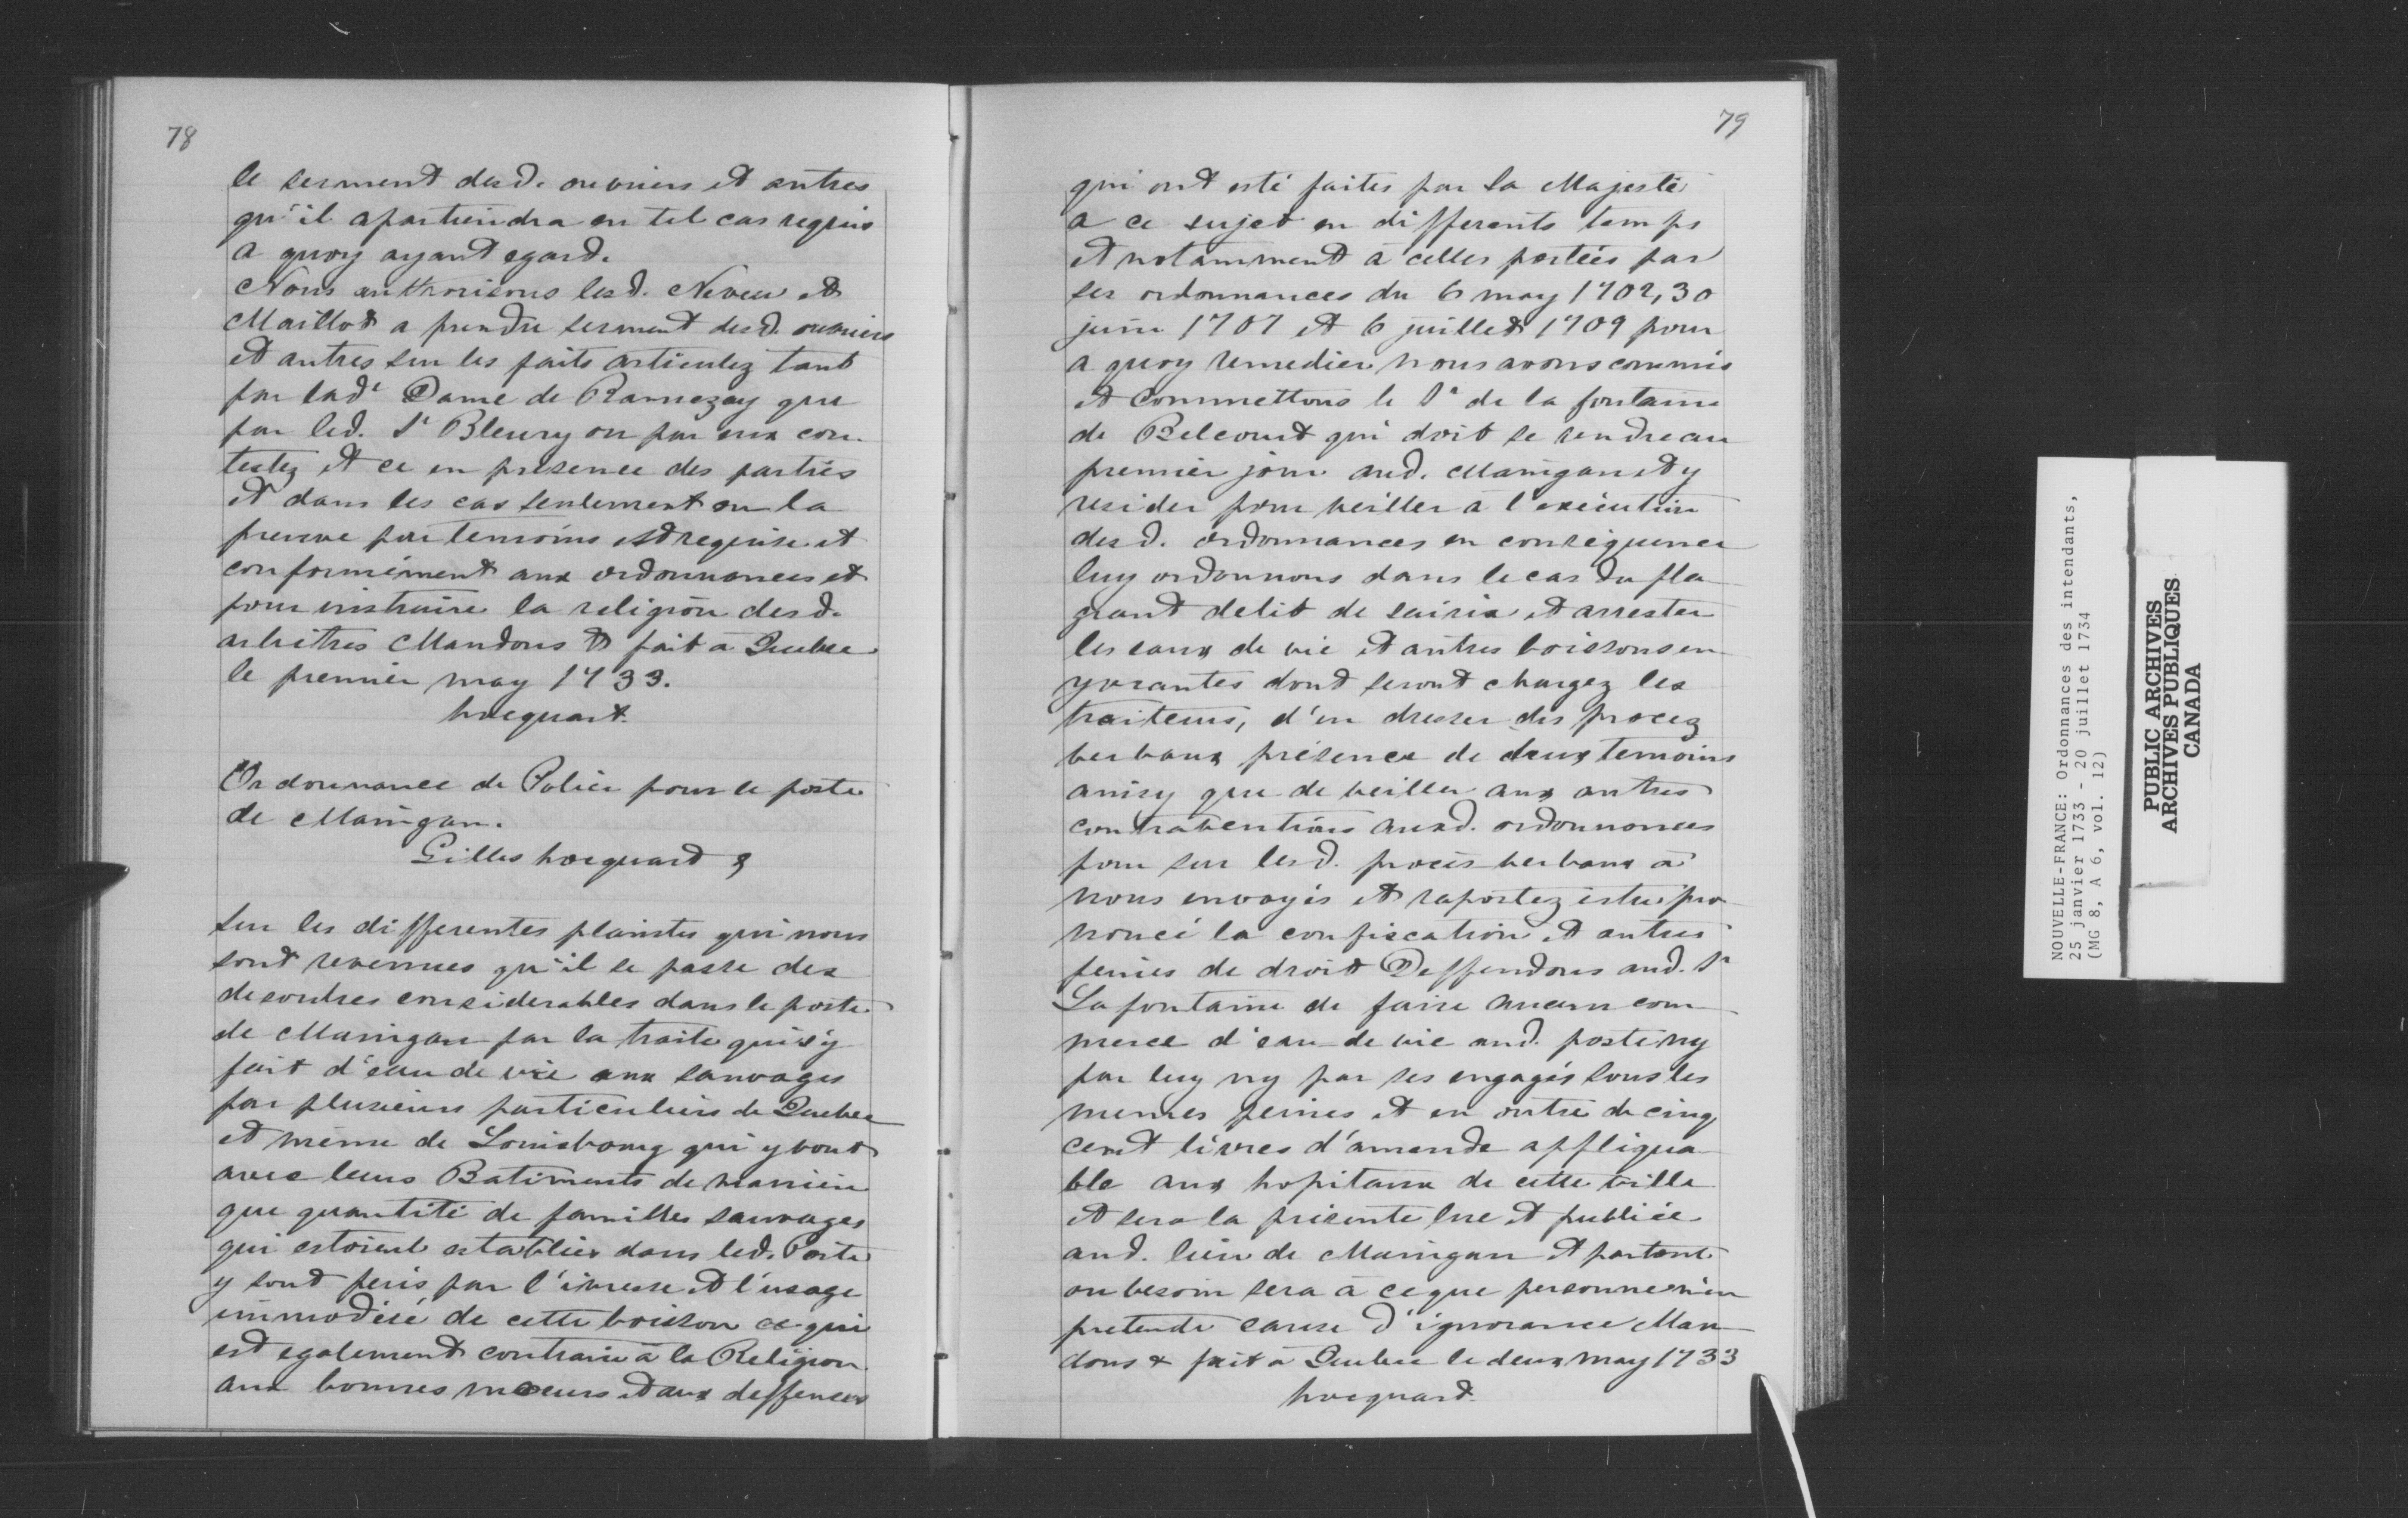 78
le serment desd. ouvriers et autres
qu'il apartiendra en tel cas requis
a quoy ayant egard.
Nous authorisons lesd. Neveu et
Maillot a prendre serment desd. ouvriers
et autres sur les faits articulez tant
par lad.e Dame de Ramezay que
par led. Sr Bleury ou par eux con-
testez et ce en présence des parties
et dans les cas seulement ou la
preuve par temoins est requise et
conformément aux ordonnances et
pour instruire la religion desd.
arbitres Mandons & fait à Quebec
le premier may 1733.
hocquart.
Ordonnance de Police pour le poste
de Maingan.
Gilles hocquart &
Sur les differentes plaintes qui nous
sont revenues qu'il se passe des
desordres considerables dans le poste
de Maingan par la traite qui s'y
fait d'eau de vie aux sauvages
par plusieurs particuliers de Quebec
et même de Louisbourg qui y vont
avec leurs Batiments de manière
que quantité de familles sauvages
qui estoient establies dans led. Poste
y sont peris par l'ivresse et l'usage
immodéré de cette boisson ce qui
est egalement contraire à la Religion
aux bonnes mœurs et aux deffenses
79
qui ont esté faites par Sa Majesté
a ce sujet en differents temps
et notamment à celles portées par
ses ordonnances du 6 may 1702, 30
juin 1707 et 6 juillet 1709 pour
a quoy remedier nous avons commis
et commettons le Sr de la fontaine
de Belcourt qui doit se rendre au
premier jour aud. Maingan et y
resider pour veiller à l'exécution
desd. ordonnances en conséquence
luy ordonnons dans le cas du fla-
grant delit de saisir et arrester
les eaux de vie et autres boissons en-
yvrantes dont seront chargez les
traiteurs, d'en dresser des procez
verbaux présence de deux temoins
ainsy que de veiller aux autres
contraventions auxd. ordonnances
pour sur lesd. procès verbaux à
nous envoyés et raportez estre pro-
noncé la confiscation et autres
peines de droit Deffendons aud. Sr
Lafontaine de faire aucun com-
merce d'eau de vie aud. poste ny
par luy ny par ses engagés sous les
memes peines et en outre de cinq
cent livres d'amende appliqua-
ble aux hopitaux de cette ville
et sera la présente lue et publiée
aud. lieu de Maingan et partout
ou besoin sera à ce que personne n'en
pretende cause d'ignorance Man-
dons & fait à Quebec le deux may 1733
hocquart.
NOUVELLE-FRANCE: Ordonnances des intendants,
25 janvier 1733 - 20 juillet 1734
(MG 8, A 6, vol. 12)
PUBLIC ARCHIVES
ARCHIVES PUBLIQUES
CANADA